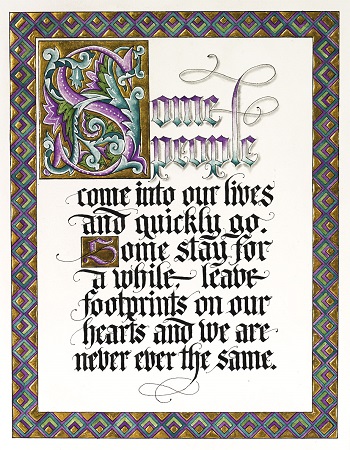 Some
people
come into our lives
and quickly go.
Some stay for
a while, leave
footprints on our
hearts and we are
never ever the same.